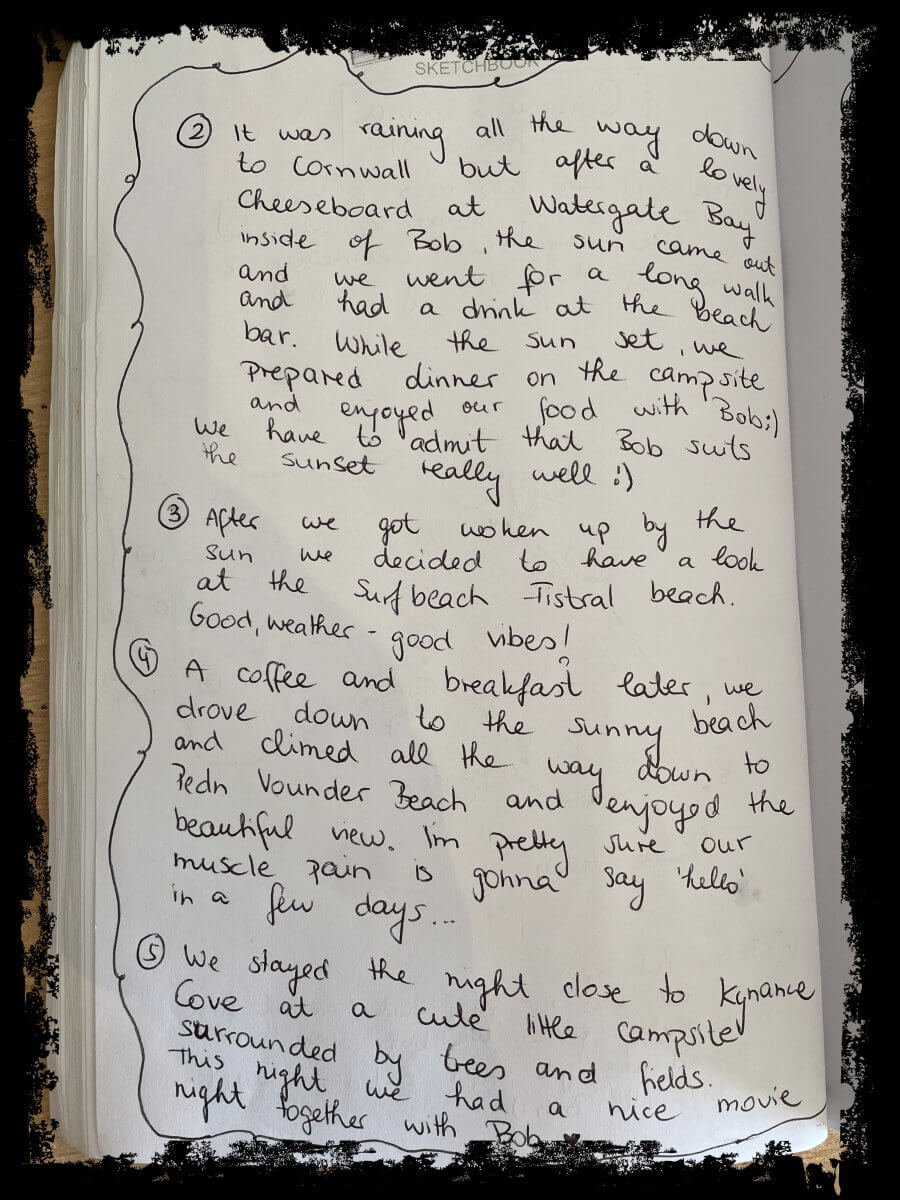 SKETCHBOOK
② It was raining all the way down
to Cornwall but after a lovely
Cheeseboard at Watergate Bay
inside of Bob, the sun came out
and we went for a long walk
and had a drink at the beach
bar. While the sun set, we
prepared dinner on the campsite
and enjoyed our food with Bob;)
We have to admit that Bob suits
the sunset really well :)
③ After we got woken up by the
sun we decided to have a look
at the Surfbeach Fistral beach.
Good, weather - good vibes!
④ A coffee and breakfast later, we
drove down to the sunny beach
and climed all the way down to
Pedn Vounder Beach and enjoyed the
beautiful view. I'm pretty sure our
muscle pain is gonna say 'hello'
in a few days...
⑤ We stayed the night close to Kynance
Cove at a cute little campsite
surrounded by trees and fields.
This night we had a nice movie
night together with Bob ♥